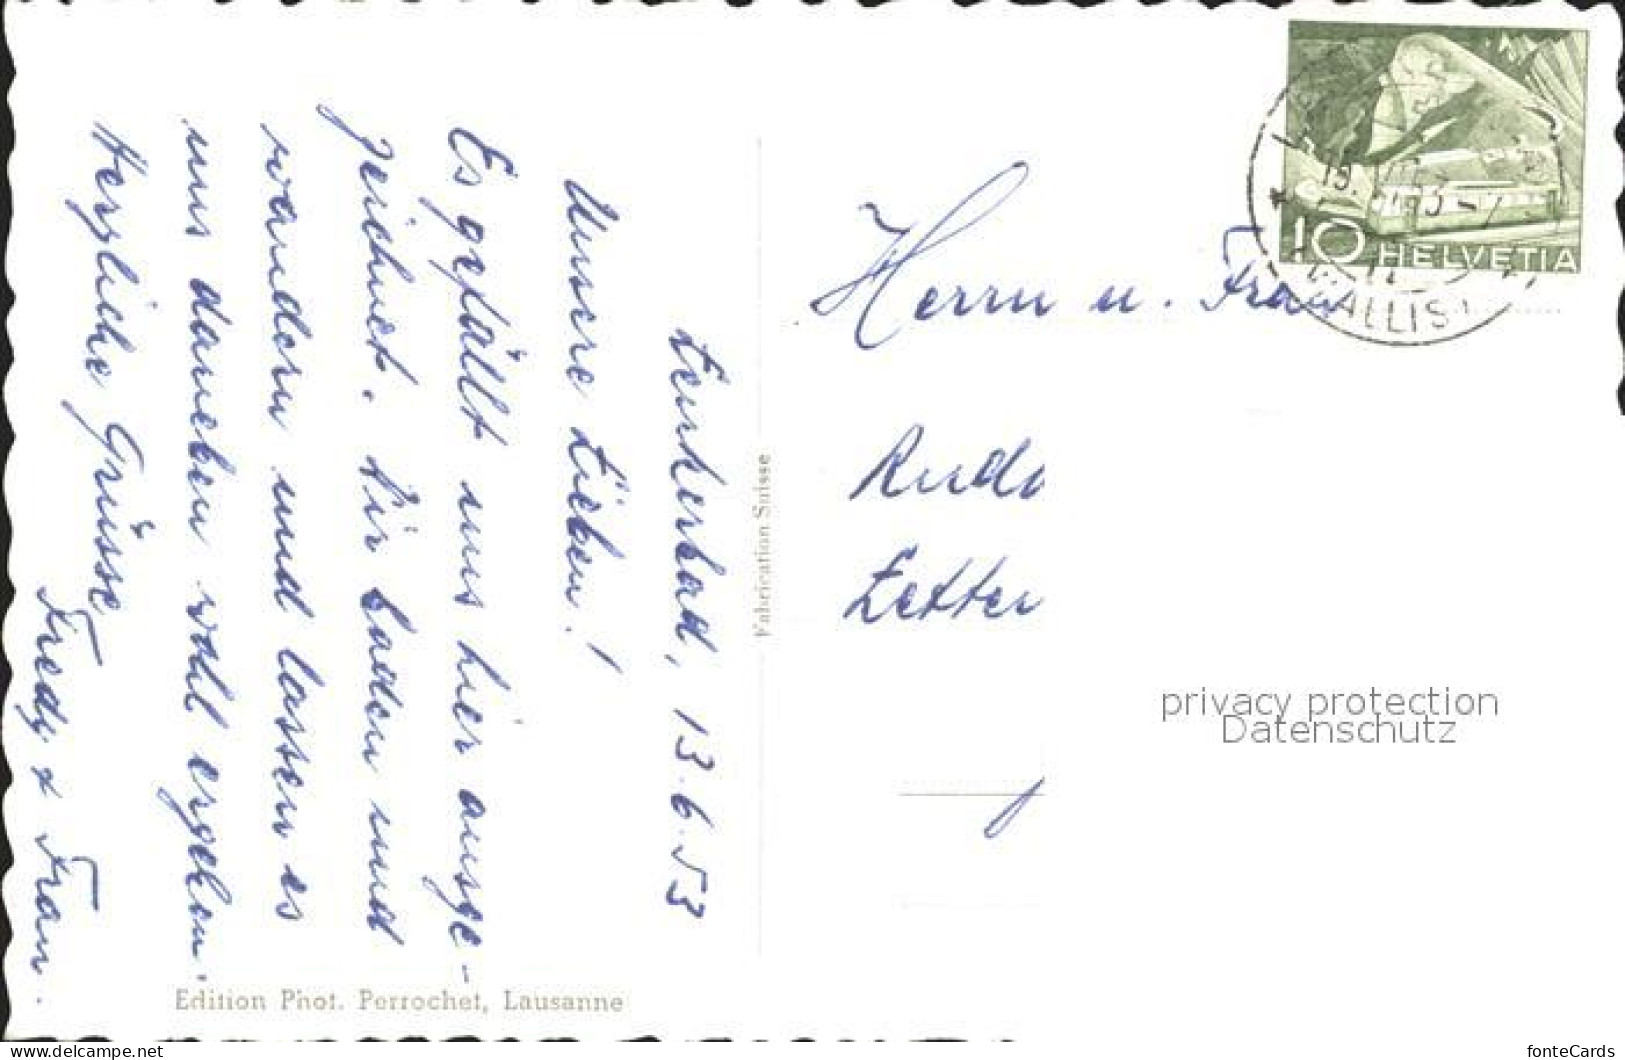 Leukerbad, 13.6.53
Unsere Lieben!
Es gefällt uns hier ausge-
zeichnet. Wir baden und
wandern und lassen es
uns daneben wohl ergehen.
Herzliche Grüsse
Fredy + Frau.
Edition Phot. Perrochet, Lausanne
Fabrication Suisse
10 HELVETIA
WALLIS
Herrn u. Frau
privacy protection
Datenschutz
www.delcampe.net
fonteCards